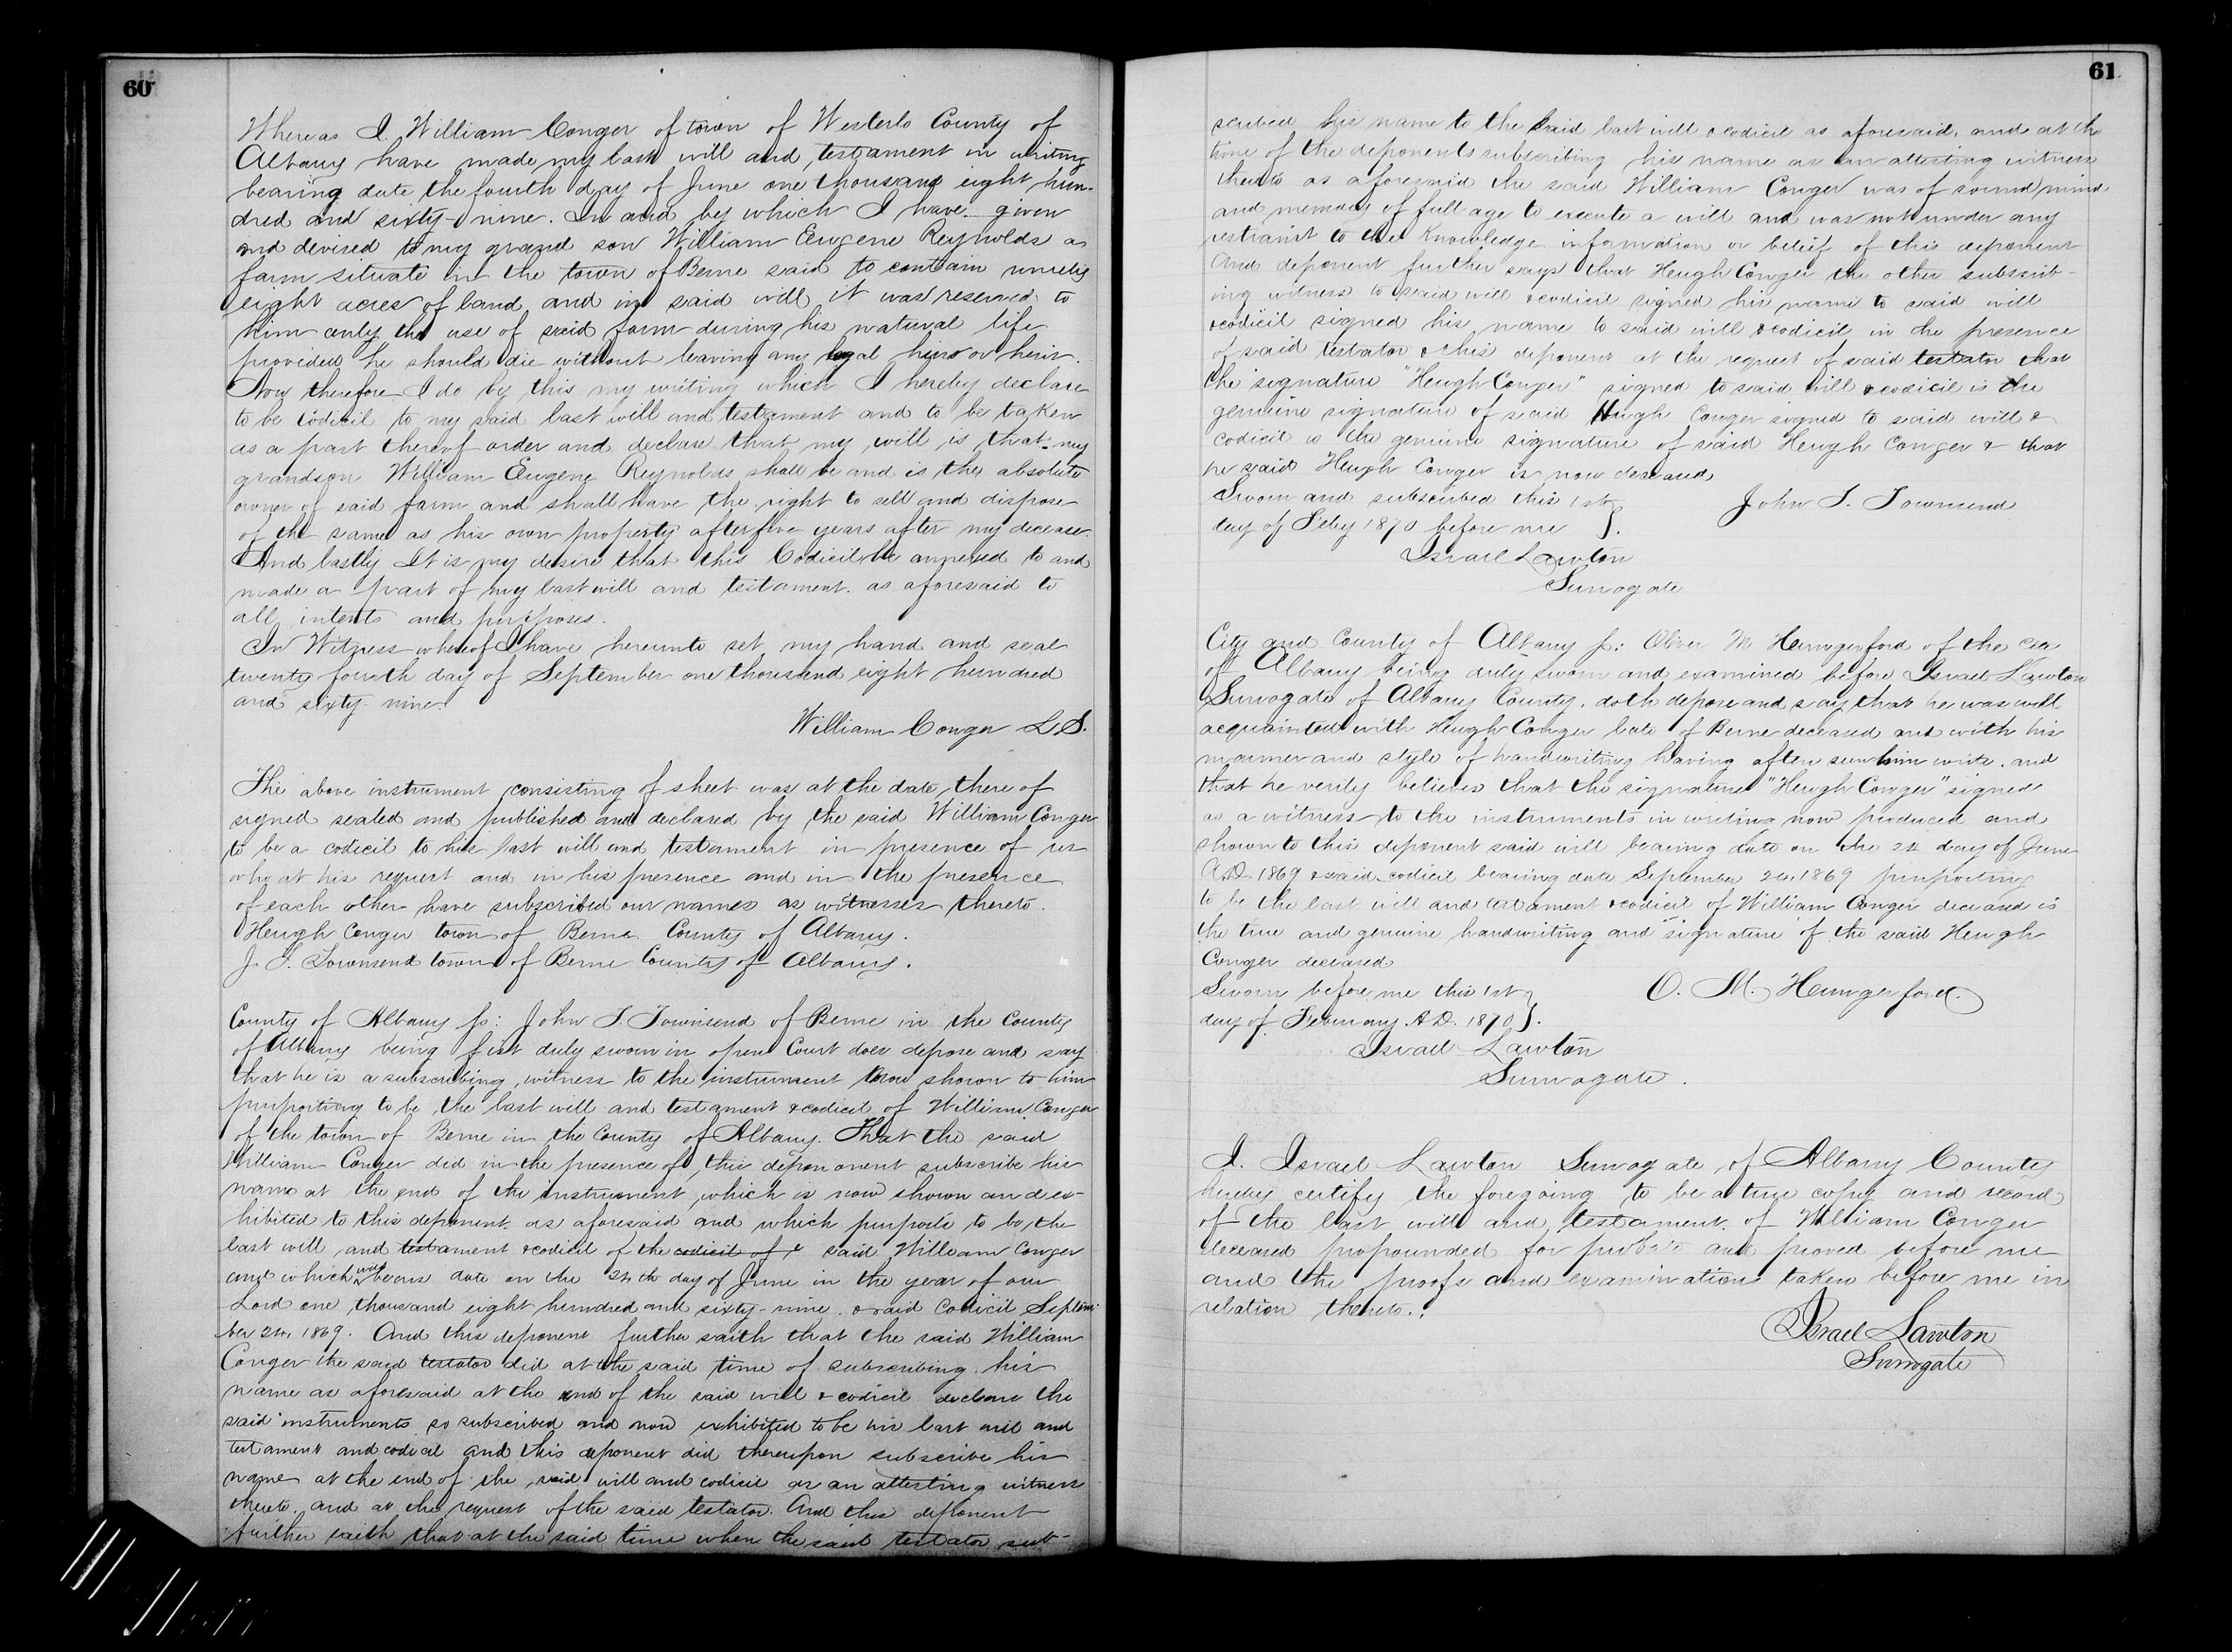 60
Whereas I. William Conger of town of Westerlo County of
Albany have made my last will and testament in writing
bearing date the fourth day of June one thousand eight hun-
dred and sixty-nine. In and by which I have given
and devised to my grand son William Eugene Reynolds a
farm situate in the town of Berne said to contain ninety
eight acres of land and in said will it was reserved to
him only the use of said farm during his natural life
provided he should die without leaving any legal heirs or heir.
Now therefore I do by this my writing which I hereby declare
to be codicil to my said last will and testament and to be taken
as a part thereof order and declare that my will is that my
grandson William Eugene Reynolds shall be and is the absolute
owner of said farm and shall have the right to sell and dispose
of the same as his own property after five years after my decease.
And lastly It is my desire that this Codicil be annexed to and
made a part of my last will and testament. as aforesaid to
all intents and purposes.
In Witness whereof I have hereunto set my hand and seal
twenty fourth day of September one thousand eight hundred
and sixty-nine.
William Conger L.S.
The above instrument consisting of sheet was at the date there of
signed sealed and published and declared by the said William Conger
to be a codicil to his last will and testament in presence of us
who at his request and in his presence and in the presence
of each other have subscribed our names as witnesses thereto.
Hugh Conger town of Berne County of Albany.
J. S. Townsend town of Berne County of Albany.
County of Albany ss: John S. Townsend of Berne in the County
of Albany being first duly sworn in open Court does depose and say
that he is a subscribing witness to the instrument now shown to him
purporting to be the last will and testament & codicil of William Conger
of the town of Berne in the County of Albany. That the said
William Conger did in the presence of this deponent subscribe his
name at the end of the instrument, which is now shown and ex-
hibited to this deponent as aforesaid and which purports to be the
last will and testament & codicil of the codicil of & said William Conger
and which will bears date on the 24th day of June in the year of our
Lord one thousand eight hundred and sixty-nine. & said Codicil Septem-
ber 24, 1869. And this deponent further saith that the said William
Conger the said testator did at the said time of subscribing his
name as aforesaid at the end of the said will & codicil declare the
said instruments so subscribed and now exhibited to be his last will and
testament and codicil and this deponent did thereupon subscribe his
name at the end of the said will and codicil as an attesting witness
thereto. and at the request of the said testator. And this deponent
further saith that at the said time when the said testator sub-
61
scribed his name to the said last will & codicil as aforesaid. and at the
time of the deponents subscribing his name as an attesting witness
thereto as aforesaid the said William Conger was of sound mind
and memory of full age to execute a will and was not under any
restraint to the knowledge information or belief of this deponent
And deponent further says that Hugh Conger the other subscrib-
ing witness to said will & codicil signed his name to said will
& codicil signed his name to said will & codicil in the presence
of said testator & this deponent at the request of said testator that
the signature "Hugh Conger" signed to said will & codicil is the
genuine signature of said Hugh Conger signed to said will &
codicil is the genuine signature of said Hugh Conger & that
he said Hugh Conger is now deceased
Sworn and subscribed this 1st
John S. Townsend
day of Feby 1870 before me }.
Israel Lawton
Surrogate
City and County of Albany ss: Oliver M Hungerford of the
of Albany being duly sworn and examined before Israel Lawton
Surrogate of Albany County, doth depose and say that he was well
acquainted with Hugh Conger late of Berne deceased and with his
manner and style of handwriting having often seen him write. and
that he verily believes that the signature "Hugh Conger" signed
as a witness to the instruments in writing now produced and
shown to this deponent said will bearing date on the 24 day of June
A.D. 1869 & said codicil bearing date September 24, 1869 purporting
to be the last will and testament & codicil of William Conger deceased is
the true and genuine handwriting and signature of the said Hugh
Conger deceased
Sworn before me this 1st
O. M. Hungerford.
day of February A.D. 1870 }.
Israel Lawton
Surrogate.
I. Israel Lawton Surrogate of Albany County
hereby certify the foregoing to be a true copy and record
of the last will and testament of William Conger
deceased propounded for probate and proved before me
and the proofs and examination taken before me in
relation thereto.
Israel Lawton
Surrogate